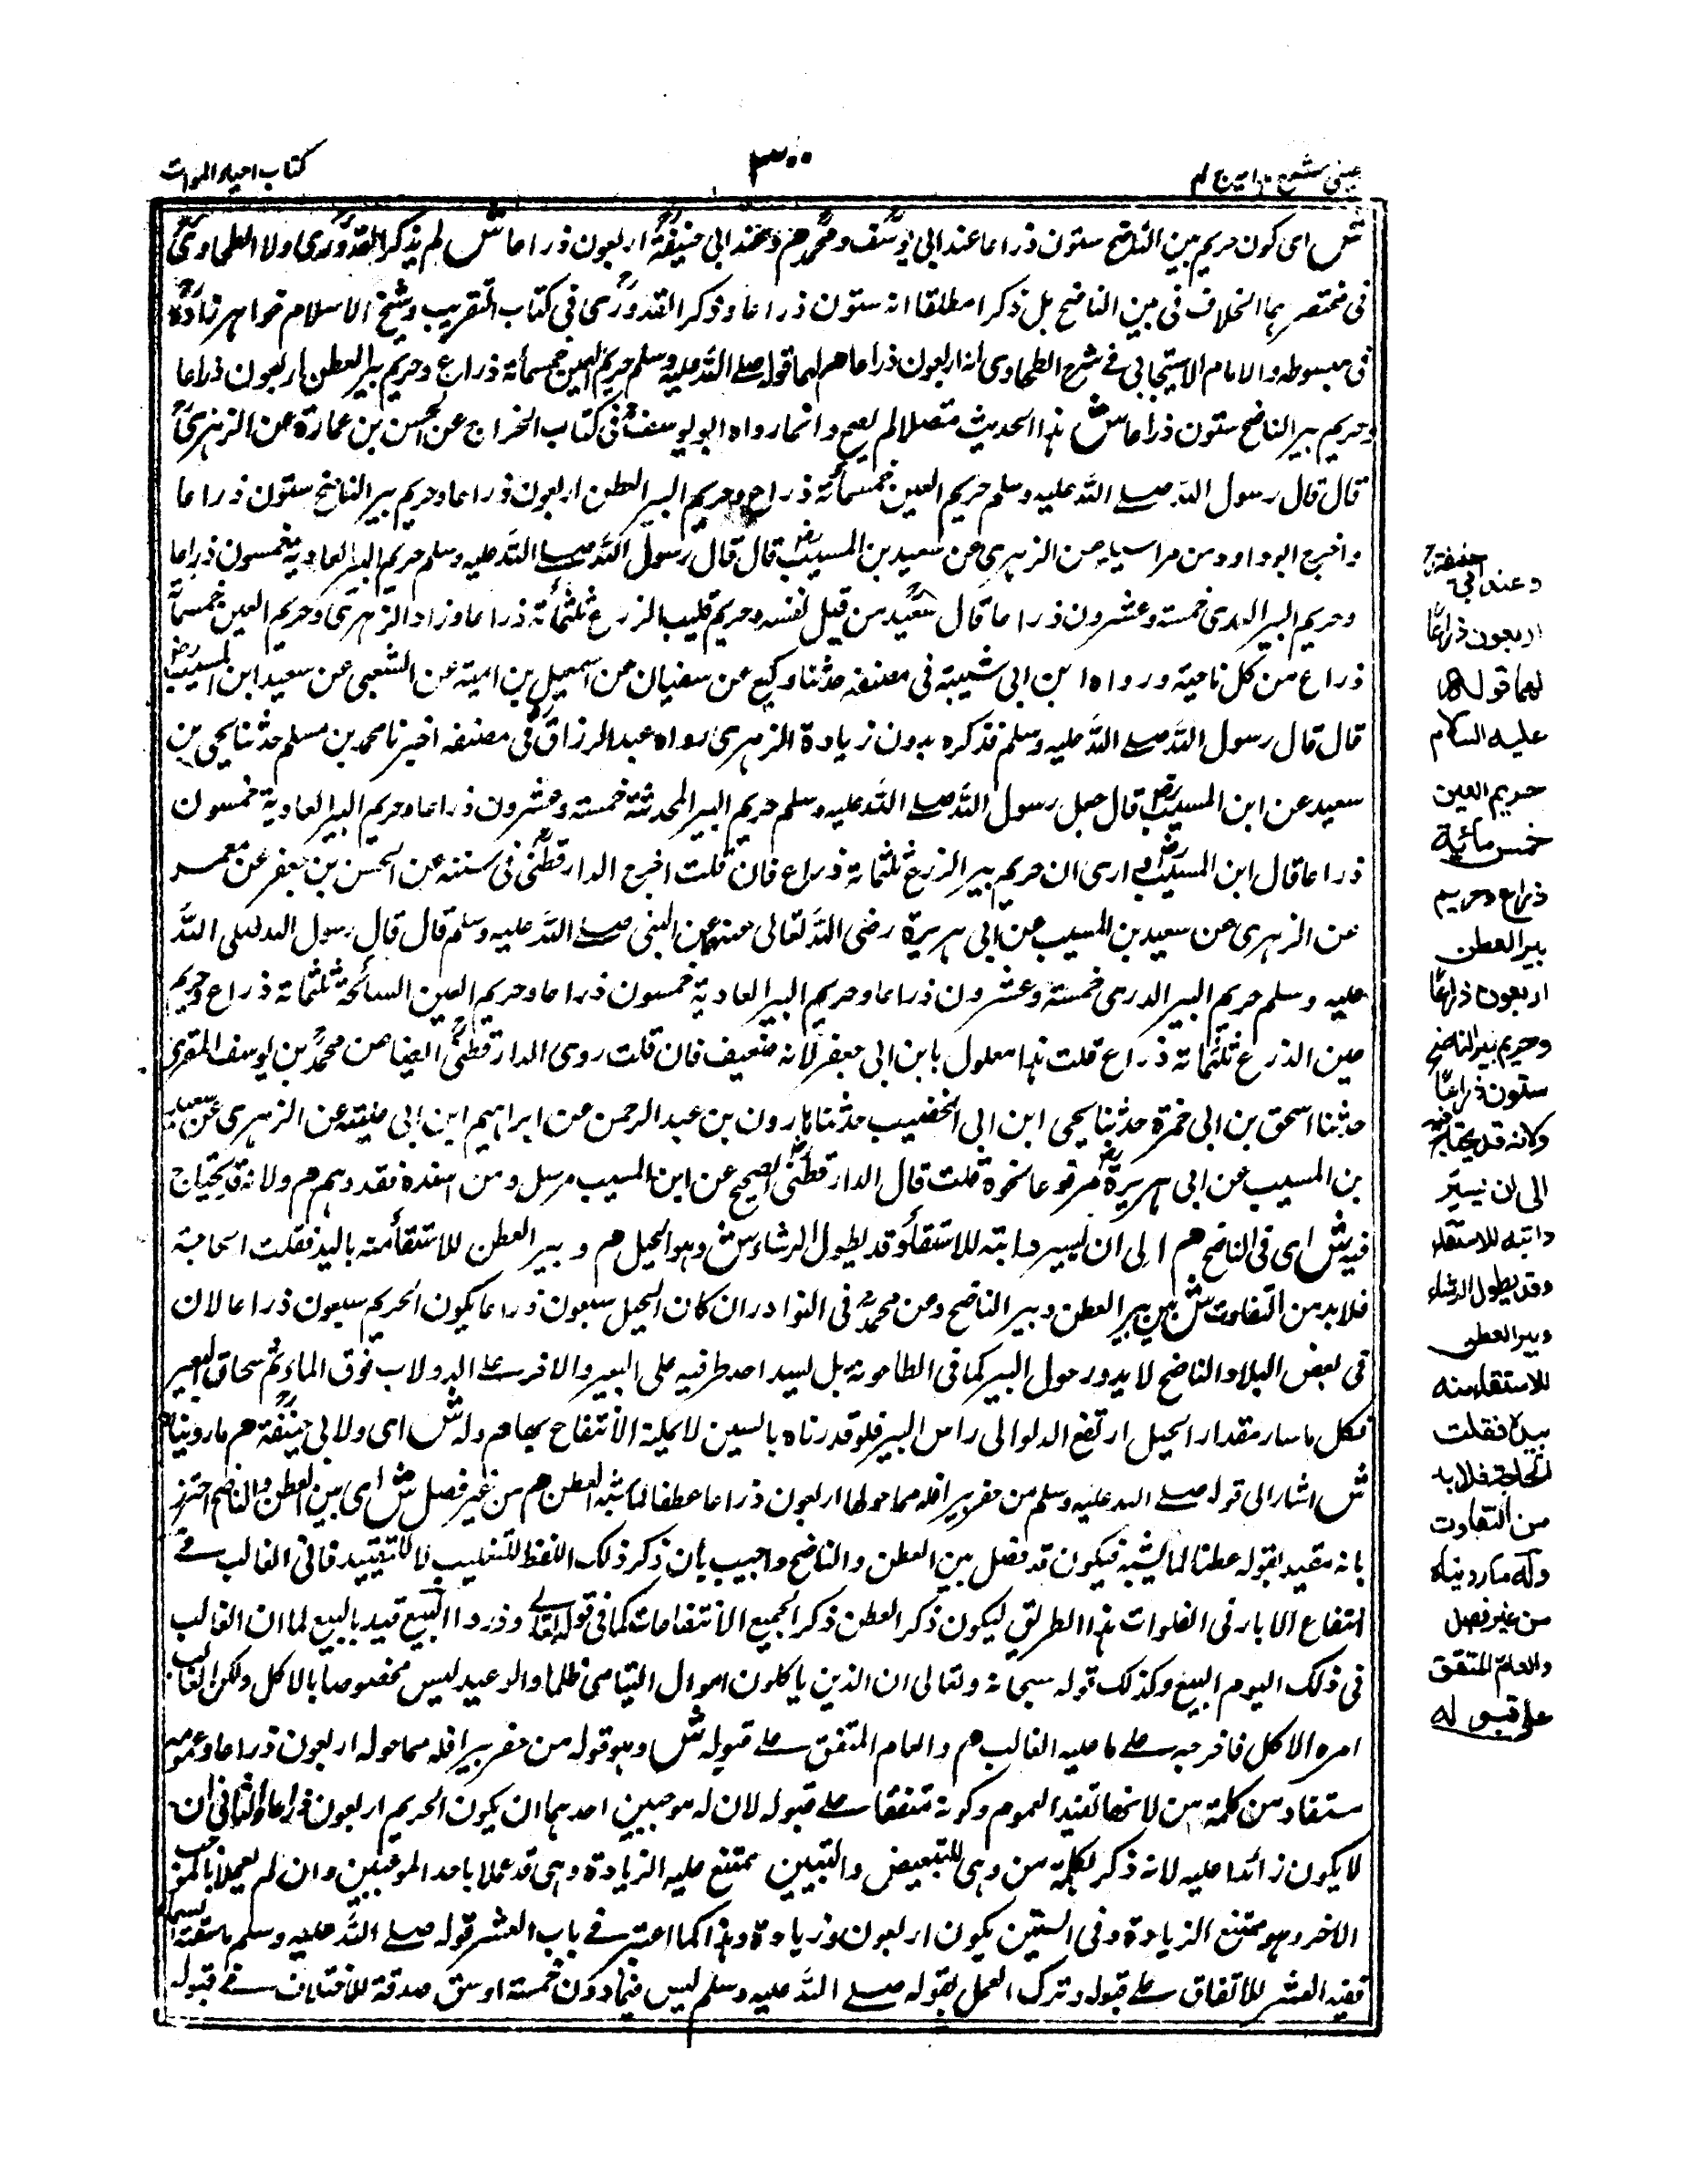 عینی شرح ہدایہ ج ٤
٣٠٠
کتاب احیاء الموات
ش ای کون حریم بین الناضح ستون ذراعا عند ابی یوسف و محمد هم وعند ابی حنیفة اربعون ذراعا ش لم یذکر القدوری ولا الطحاوی
فی مختصریہما الخلاف فی بین الناضح بل ذکرا مطلقا انہ ستون ذراعا وذکر القدوری فی کتاب التقریب وشیخ الاسلام خواہر زادہ
فی مبسوطہ والامام الاسبیجابی فے شرح الطحاوی انہ اربعون ذراعا هم لہما قولہ صلے اللہ علیہ وسلم حریم العین خمسمائة ذراع وحریم بیر العطن اربعون ذراعا
وحریم بیر الناضح ستون ذراعا ش ہذا الحدیث متصلا لم یصح وانما رواہ ابو یوسف فی کتاب الخراج عن الحسن بن عمارة عن الزہری
قال قال رسول اللہ صلے اللہ علیہ وسلم حریم العین خمسمائة ذراع وحریم البیر العطن اربعون ذراعا وحریم بیر الناضح ستون ذراعا
واخرج ابو داود من مراسیلہ عن الزہری عن سعید بن المسیب قال قال رسول اللہ صلے اللہ علیہ وسلم حریم البیر العادیة خمسون ذراعا
وحریم البیر البدی خمسة وعشرون ذراعا قال سعید من قیل نفسہ وحریم قلیب الزرع ثلثمائة ذراعا وزاد الزہری وحریم العین خمسمائة
ذراع من کل ناحیة ورواہ ابن ابی شیبة فی مصنفہ حدثنا وکیع عن سفیان عن اسمعیل بن امیة عن الشعبی عن سعید ابن المسیب
قال قال رسول اللہ صلے اللہ علیہ وسلم فذکرہ بدون زیادة الزہری رواہ عبد الرزاق فی مصنفہ اخبرنا محمد بن مسلم حدثنا یحیی بن
سعید عن ابن المسیب قال جعل رسول اللہ صلے اللہ علیہ وسلم حریم البیر المحدثة خمسة وعشرون ذراعا وحریم البیر العادیة خمسون
ذراعا قال ابن المسیب واری ان حریم بیر الزرع ثلثمائة ذراع فان قلت اخرج الدارقطنی فی سننہ عن الحسن بن جعفر عن معمر
عن الزہری عن سعید بن المسیب عن ابی ہریرة رضی اللہ تعالی عنہما عن النبی صلے اللہ علیہ وسلم قال قال رسول اللہ صلی اللہ
علیہ وسلم حریم البیر البدی خمسة وعشرون ذراعا وحریم البیر العادیة خمسون ذراعا وحریم العین السائحة ثلثمائة ذراع وحریم
عین الذرع ثلثمائة ذراع قلت ہذا معلول بابن ابی جعفر لانہ ضعیف فان قلت روی الدارقطنی ایضا عن محمد بن یوسف المقری
حدثنا اسحق بن ابی حمزة حدثنا یحیی ابن ابی الخصیب حدثنا ہارون بن عبد الرحمن عن ابراہیم ابن ابی علیة عن الزہری عن سعید
بن المسیب عن ابی ہریرة مرفوعا نحوہ قلت قال الدارقطنی الصحیح عن ابن المسیب مرسل ومن اسندہ فقد وہم هم ولانہ قد یحتاج
فیہ ش ای فی الناضح هم الی ان یسیر دابتہ للاستقاء وقد یطول الرشاء ش وہو الحبل هم و بیر العطن للاستقاء منہ بالید فقلت الحاجة
فلا بد من التفاوت ش بین بیر العطن وبیر الناضح وعن محمد فی النوادر ان کان الحبل سبعون ذراعا یکون الحریم سبعون ذراعا لان
فی بعض البلاد الناضح لا یدور حول البیر کما فی الطاحونة بل یشد احد طرفیہ علی البعیر والآخر علے الدولاب فوق الماء ثم یساق البعیر
فکل ما سار مقدار الحبل ارتفع الدلو الی راس البیر فلو قدرناہ بالستین لا یکمل الانتفاع بہا هم ولہ ش ای ولابی حنیفة هم ما روینا
ش اشار الی قولہ صلے اللہ علیہ وسلم من حفر بیرا فلہ مما حولہا اربعون ذراعا عطنا لماشیتہ العطن هم من غیر فصل ش ای بین العطن والناضح احترز
بانہ مقید بقولہ عطنا لماشیتہ فیکون قد فصل بین العطن والناضح واجیب بان ذکر ذلک اللفظ للتغلیب لا للتقیید فانی الغالب فے
انتفاع الابار فی الفلوات ہذا الطریق لیکون ذکر العطن ذکر الجمیع الانتفاعات کما فی قولہ تعالے وذروا البیع قید بالبیع لما ان الغالب
فی ذلک الیوم البیع وکذلک قولہ سبحانہ وتعالی ان الذین یاکلون اموال الیتامی ظلما والوعید لیس مخصوصا بالاکل ولکن الغالب
امرہ الاکل فاخرجہ علے ما علیہ الغالب هم والعام المتفق علے قبولہ ش وہو قولہ من حفر بیرا فلہ مما حولہ اربعون ذراعا وعمومہ
مستفاد من کلمة من لانہا تفید العموم وکونہ متفقا علے قبولہ لان لہ موجبین احدہما ان یکون الحریم اربعون ذراعا والثانی ان
لا یکون زائدا علیہ لانہ ذکر بکلمة من وہی للتبعیض والتبیین یمتنع علیہ الزیادة وہی قد عملا باحد الموجبین وان لم یعملا بالموجب
الآخر وہو ممتنع الزیادة وفی الستین یکون اربعون وزیادة وہذا کما اعتبر فے باب العشر قولہ صلے اللہ علیہ وسلم ما سقتہ السماء
ففیہ العشر للاتفاق علے قبولہ وترک العمل بقولہ صلے اللہ علیہ وسلم لیس فیما دون خمسة اوسق صدقة للاختلاف فے قبولہ
وعند ابی حنیفة
اربعون ذراعا
لہما قولہ
علیہ السلام
حریم العین
خمس مائة
ذراع وحریم
بیر العطن
اربعون ذراعا
وحریم بیر الناضح
ستون ذراعا
ولانہ قد یحتاج فیہ
الی ان یسیر
دابتہ للاستقاء
وقد یطول الرشاء
وبیر العطن
للاستقاء منہ
بیدہ فقلت
الحاجة فلا بد
من التفاوت
ولہ ما روینا
من غیر فصل
والعام المتفق
علی قبولہ